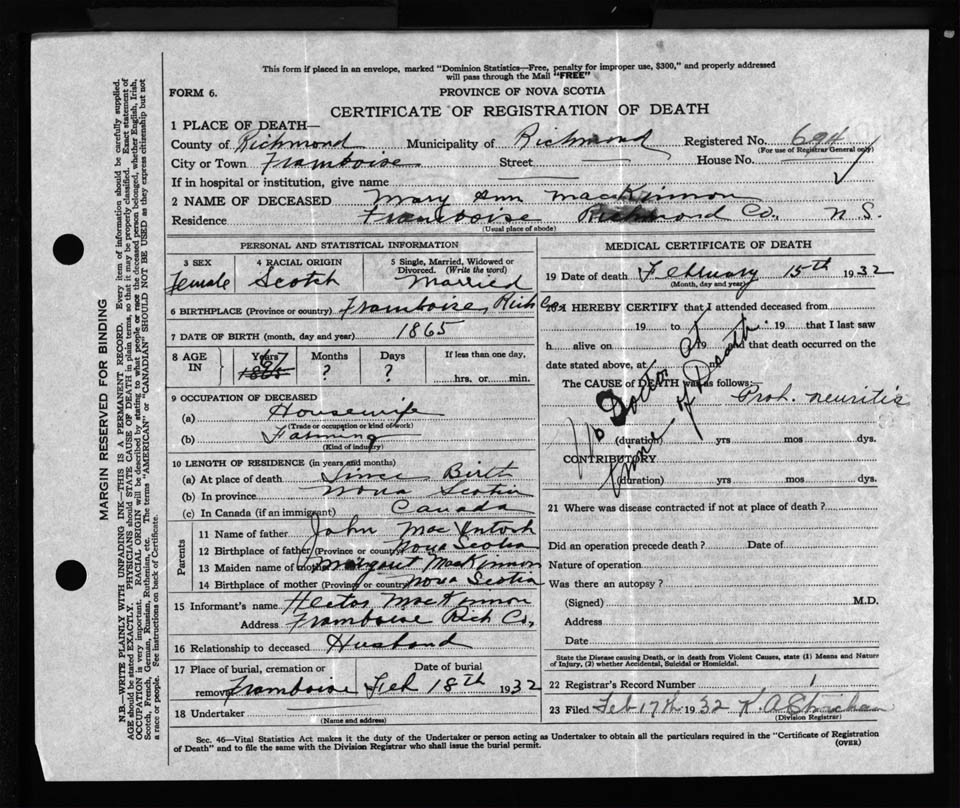 This form if placed in an envelope, marked "Dominion Statistics—Free, penalty for improper use, $300," and properly addressed
will pass through the Mail "FREE"
FORM 6.
PROVINCE OF NOVA SCOTIA
CERTIFICATE OF REGISTRATION OF DEATH
1 PLACE OF DEATH—
County of Richmond Municipality of Richmond Registered No. 694
(For use of Registrar General only)
City or Town Framboise Street — House No. —
If in hospital or institution, give name
2 NAME OF DECEASED Mary Ann MacKinnon
Residence Framboise Richmond Co., N.S.
(Usual place of abode)
PERSONAL AND STATISTICAL INFORMATION
3 SEX 4 RACIAL ORIGIN 5 Single, Married, Widowed or
Divorced. (Write the word)
Female Scotch Married
6 BIRTHPLACE (Province or country) Framboise, Rich Co.,
7 DATE OF BIRTH (month, day and year) 1865
8 AGE IN Years Months Days If less than one day,
67 1865 ? ? hrs. or min.
9 OCCUPATION OF DECEASED
(a) Housewife
(Trade or occupation or kind of work)
(b) Farming
(Kind of industry)
10 LENGTH OF RESIDENCE (in years and months)
(a) At place of death Since Birth
(b) In province Nova Scotia
(c) In Canada (if an immigrant) Canada
Parents
11 Name of father John MacIntosh
12 Birthplace of father (Province or country) Nova Scotia
13 Maiden name of mother Margaret MacKinnon
14 Birthplace of mother (Province or country) Nova Scotia
15 Informant's name Hector MacKinnon
Address Framboise Rich Co.,
16 Relationship to deceased Husband
17 Place of burial, cremation or Date of burial
removal Framboise Feb 18th 1932
18 Undertaker
(Name and address)
MEDICAL CERTIFICATE OF DEATH
19 Date of death February 15th 1932
(Month, day and year)
20 I HEREBY CERTIFY that I attended deceased from
19 to 19 that I last saw
h alive on 19 and that death occurred on
date stated above, at m
The CAUSE of DEATH was as follows:
Prob. neuritis
No Doctor at
time of Death.
(duration) yrs mos dys.
CONTRIBUTORY
(duration) yrs mos dys.
21 Where was disease contracted if not at place of death?
Did an operation precede death? Date of
Nature of operation
Was there an autopsy?
(Signed) M.D.
Address
Date
State the Disease causing Death, or in death from Violent Causes, state (1) Means and Nature
of Injury, (2) whether Accidental, Suicidal or Homicidal.
22 Registrar's Record Number 1
23 Filed Feb 17th 1932 K. A. Strachan
(Division Registrar)
Sec. 46—Vital Statistics Act makes it the duty of the Undertaker or person acting as Undertaker to obtain all the particulars required in the "Certificate of Registration
of Death" and to file the same with the Division Registrar who shall issue the burial permit. (OVER)
MARGIN RESERVED FOR BINDING
N.B.—WRITE PLAINLY WITH UNFADING INK—THIS IS A PERMANENT RECORD. Every item of information should be carefully supplied.
AGE should be stated EXACTLY. PHYSICIANS should STATE CAUSE OF DEATH in plain terms, so that it may be properly classified. Exact statement of
OCCUPATION is very important. RACIAL ORIGIN will be described by stating to what people or race the deceased person belonged, whether English, Irish,
Scotch, French, German, Russian, Ruthenian, etc. The terms "AMERICAN" or "CANADIAN" SHOULD NOT BE USED as they express citizenship but not
a race or people. See instructions on back of Certificate.